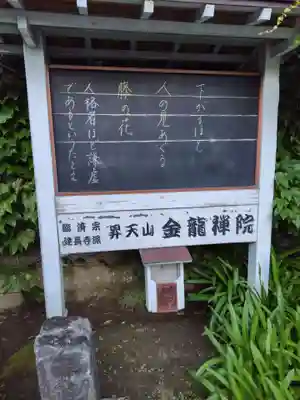 下がるほど
人の見あぐる
藤の花
人格者ほど謙虚
でありたいうたとえ
臨済宗
建長寺派
昇天山
金龍禅院